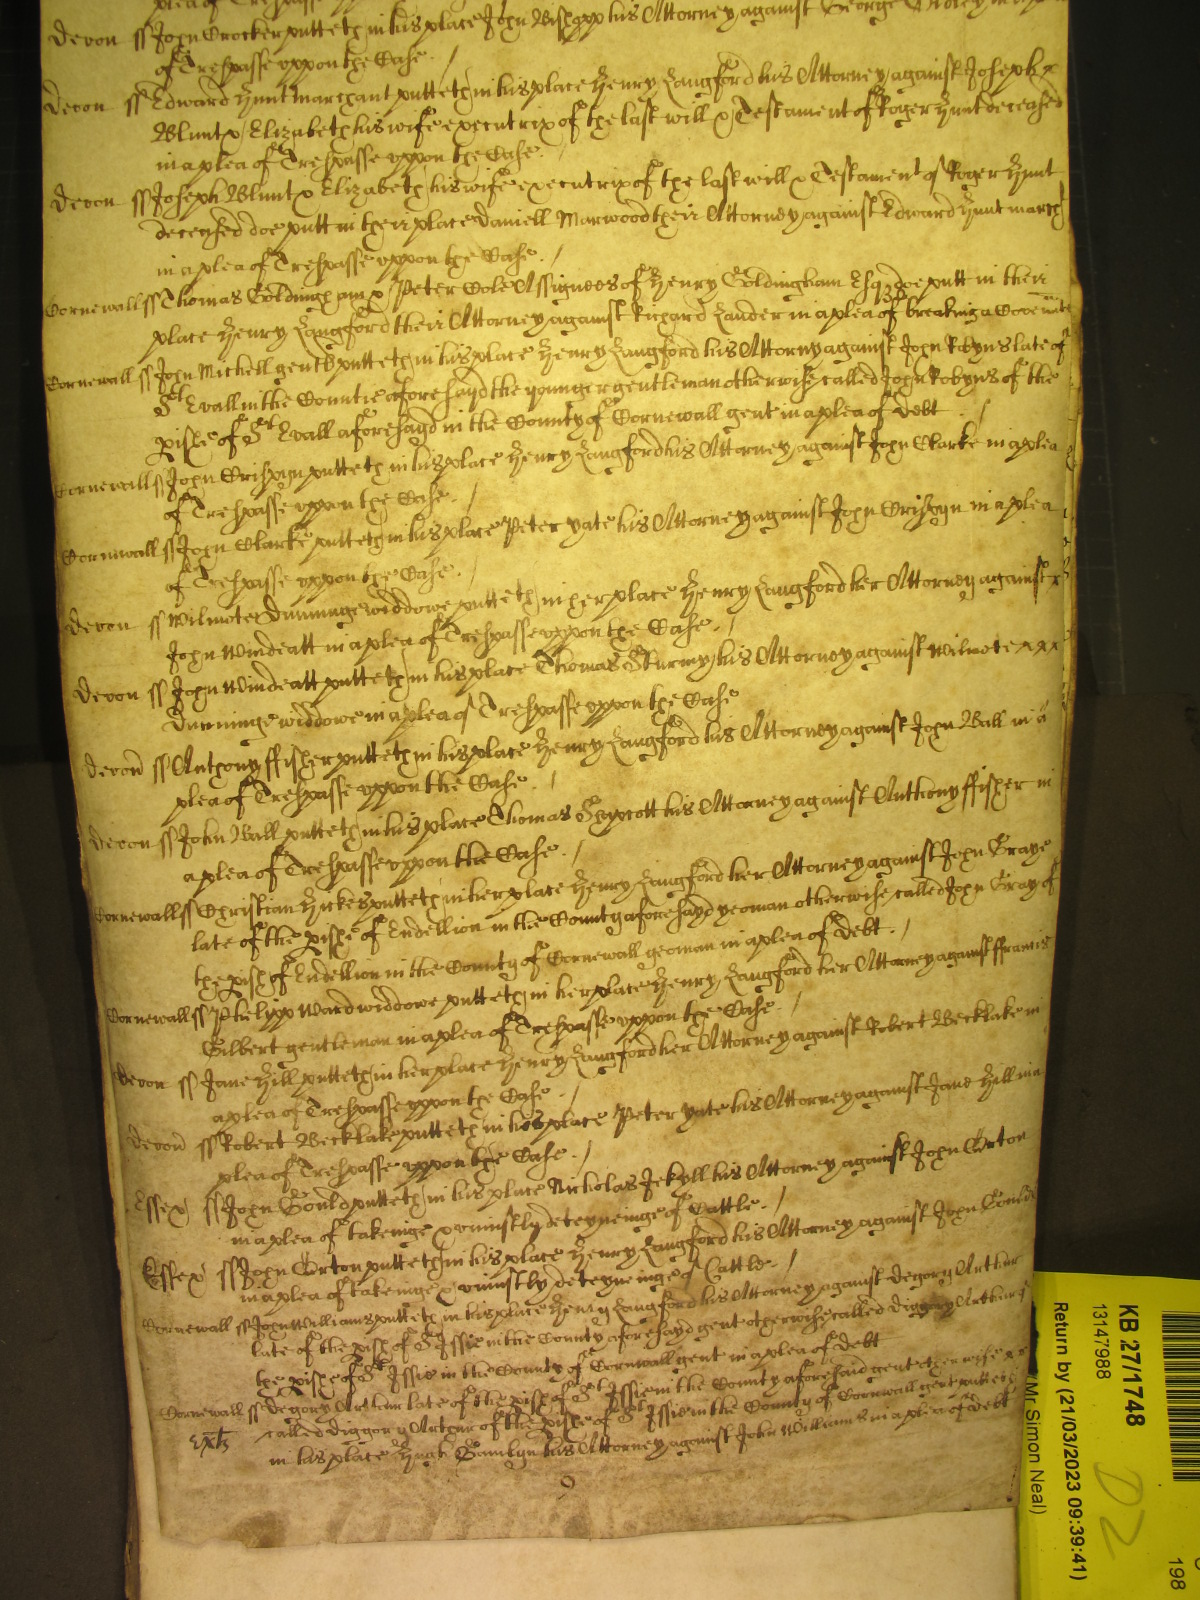 plea of Trespasse uppon the Case
Devon ss John Crocker putteth in his place John Bishopp his Attorney against George
of Trespasse uppon the Case. /
Devon ss Edward Hunt marchant putteth in his place Henry Langford his Attorney against Joseph x
Blunt & Elizabeth his wife executrix of the last will & Testament of Roger Hunt deceased
in a plea of Trespasse uppon the Case. /
Devon ss Joseph Blunt & Elizabeth his wife executrix of the last will & Testament of Roger Hunt
deceased doe putt in their place Daniell Marwood their Attorney against Edward Hunt march
in a plea of Trespasse uppon the Case. /
Cornewall ss Thomas Goldingham & Peter Cole Assignees of Henry Goldingham Esqz doe putt in their
place Henry Langford their Attorney against Richard Lander in a plea of breaking a Covennte
Cornewall ss John Michell gent putteth in his place Henry Langford his Attorny against John Robyns late of
St Evall in the Countie aforesayd the younger gentleman otherwise called John Robyns of the
pishe of St Evall aforesayd in the County of Cornewall gent in a plea of Debt . /
Cornewall ss John Crispyn putteth in his place Henry Langford his Attorney against John Clarke in a plea
of Trespasse uppon the Case. /
Cornwall ss John Clarke putteth in his place Peter Yate his Attorney against John Crispyn in a plea
of Trespasse uppon the Case. /
Devon ss Wilmote Dunninge widdowe putteth in her place Henry Langford her Attorney against x
John Windeatt in a plea of Trespasse uppon the Case. /
Devon ss John Windeatt putteth in his place Thomas Sturmy his Attorney against Wilmote xxx
Dunninge widdowe in a plea of Trespasse uppon the Case
Devon ss Anthony ffisher putteth in his place Henry Langford his Attorney against John Ball in a
plea of Trespasse uppon the Case. /
Devon ss John Ball putteth in his place Thomas his Attorney against Anthony ffisher in
a plea of Trespasse uppon the Case. /
Cornewall ss Christian Hickes putteth in her place Henry Langford her Attorney against John Graye
late of the pishe of Endellion in the County aforesayd yeoman otherwise called John Gray of
the pish of Endellion in the County of Cornewall yeoman in a plea of Debt. /
Cornewall ss Phelipp Ward widdowe putteth in her place Henry Langford her Attorney against ffrancis
Gilbert gentleman in a plea of Trespasse uppon the Case. /
Devon ss Jane Hill putteth in her place Henry Langford her Attorney against Robert Becklake in
a plea of Trespasse uppon the Case. /
Devon ss Robert Becklake putteth in his place Peter Yate his Attorney against Jane Hill in a
plea of Trespasse uppon the Case. /
Essex ss John Gould putteth in his place Nicholas Jekyll his Attorney against John Orton
in a plea of takeinge & uniustly deteyneinge of Cattle. /
Essex ss John Orton putteth in his place Henry Langford his Attorney against John Gould
in a plea of takeinge & uniustly deteyneinge of Cattle. /
Cornewall ss John Williams putteth in his place Henry Langford his Attorney against Degory Arthur
late of the pish of St Issie in the County aforesayd gent otherwise called Diggory Arthur of
the pishe of St Issie in the County of Cornwall gent in a plea of Debt
Cornewall ss Degory Arthur late of the pish of St Issie in the County aforesaid gent otherwise x x
called Diggory Arthur of the pishe of St Issie in the County of Cornwall gent putteth
in his place Hugh his Attorney against John Williams in a plea of Debt
KB 27/1748
13147988
Return by (21/03/2023 09:39:41)
(Mr Simon Neal)
D2
198